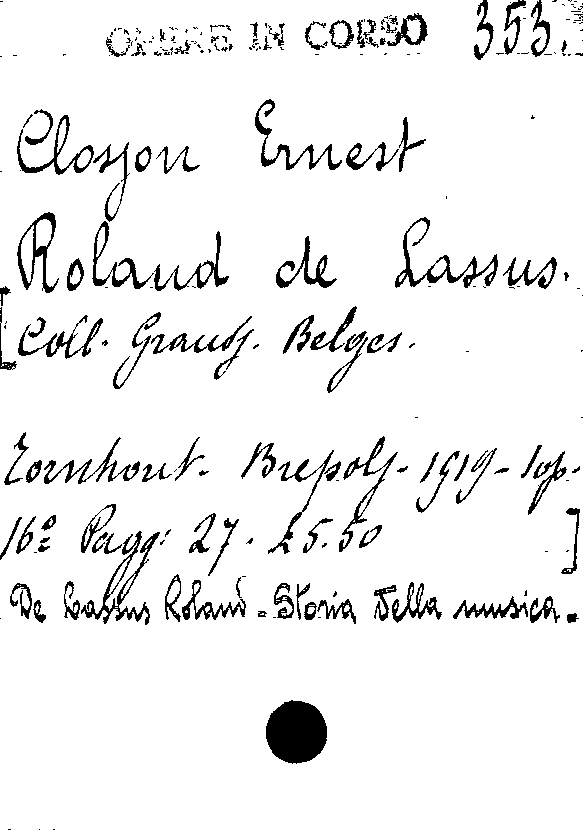 OPERE IN CORSO 353.
Closson Ernest
Roland de Lassus.
[Coll. Grands. Belges.
Tornhout. Brepols. 1919 - 1 op.
16º Pagg: 27. £5.50 ]
De Lassus Roland - Storia Della musica.